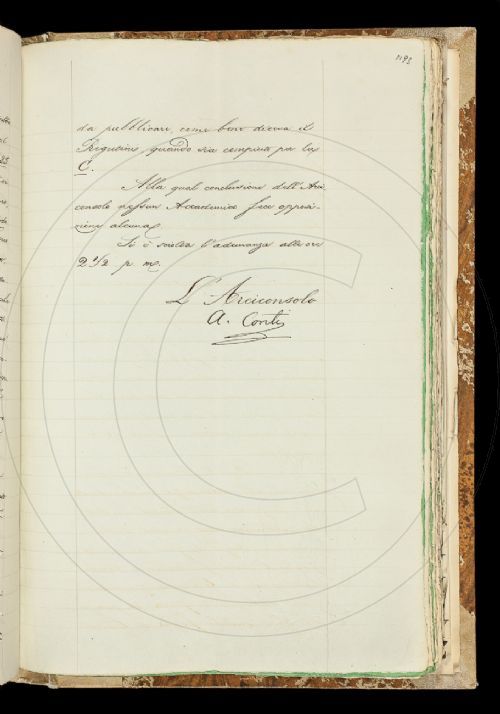 1198
da pubblicare, come bene diceva il
Rigutini quando sia compiuto per lu
C.
Alla qual conclusione dell'Arci
consolo nessun Accademico fece opposi-
zione alcuna.
Si è sciolta l'adunanza alle ore
2 1/2 p. m.
L'Arciconsolo
A. Conti